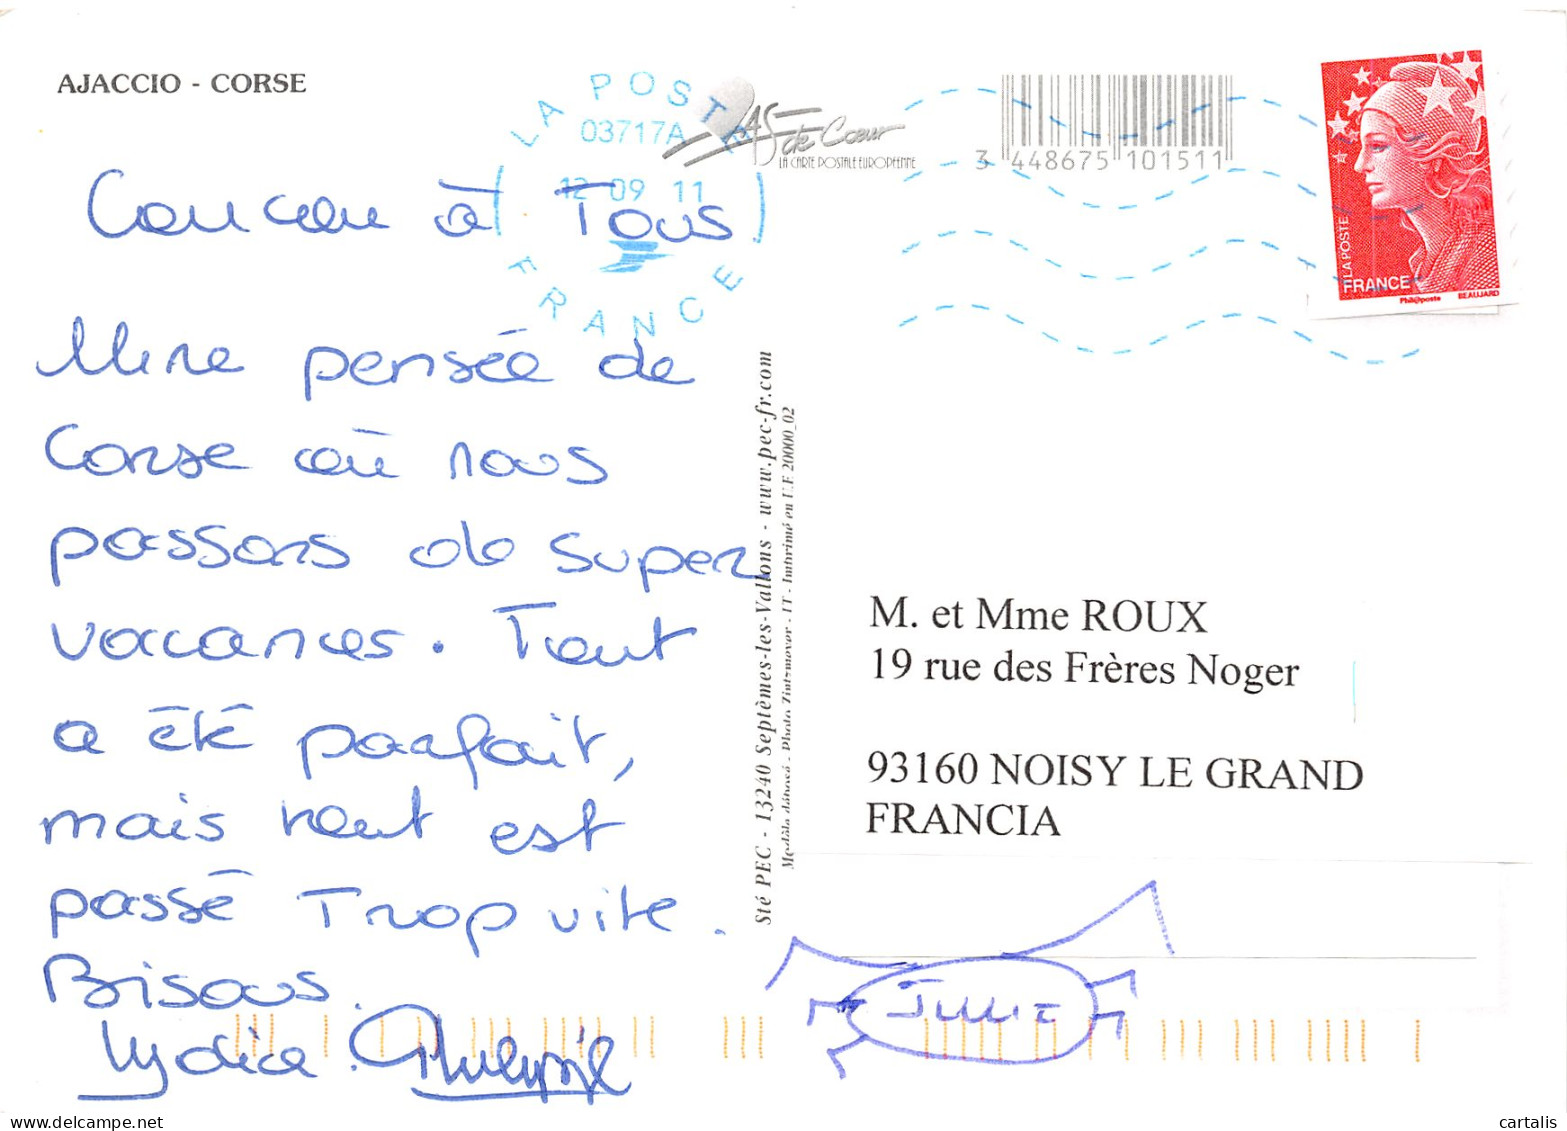 AJACCIO - CORSE
LA POSTE
03717A
12-09 11
FRANCE
AS de Cœur
LA CARTE POSTALE EUROPÉENNE
3 448675 101511
LA POSTE
FRANCE
Phil@poste BEAUJARD
Coucou à Tous
Une pensée de
Corse où nous
passons de super
vacances. Tout
a été parfait,
mais tout est
passé Trop vite.
Bisous.
Lydia.
Sté PEC - 13240 Septèmes-les-Vallons - www.pec-fr.com
Modèle déposé - Photo - IT - Imprimé en U.E 20000_02
M. et Mme ROUX
19 rue des Frères Noger
93160 NOISY LE GRAND
FRANCIA
Julie
cartalis